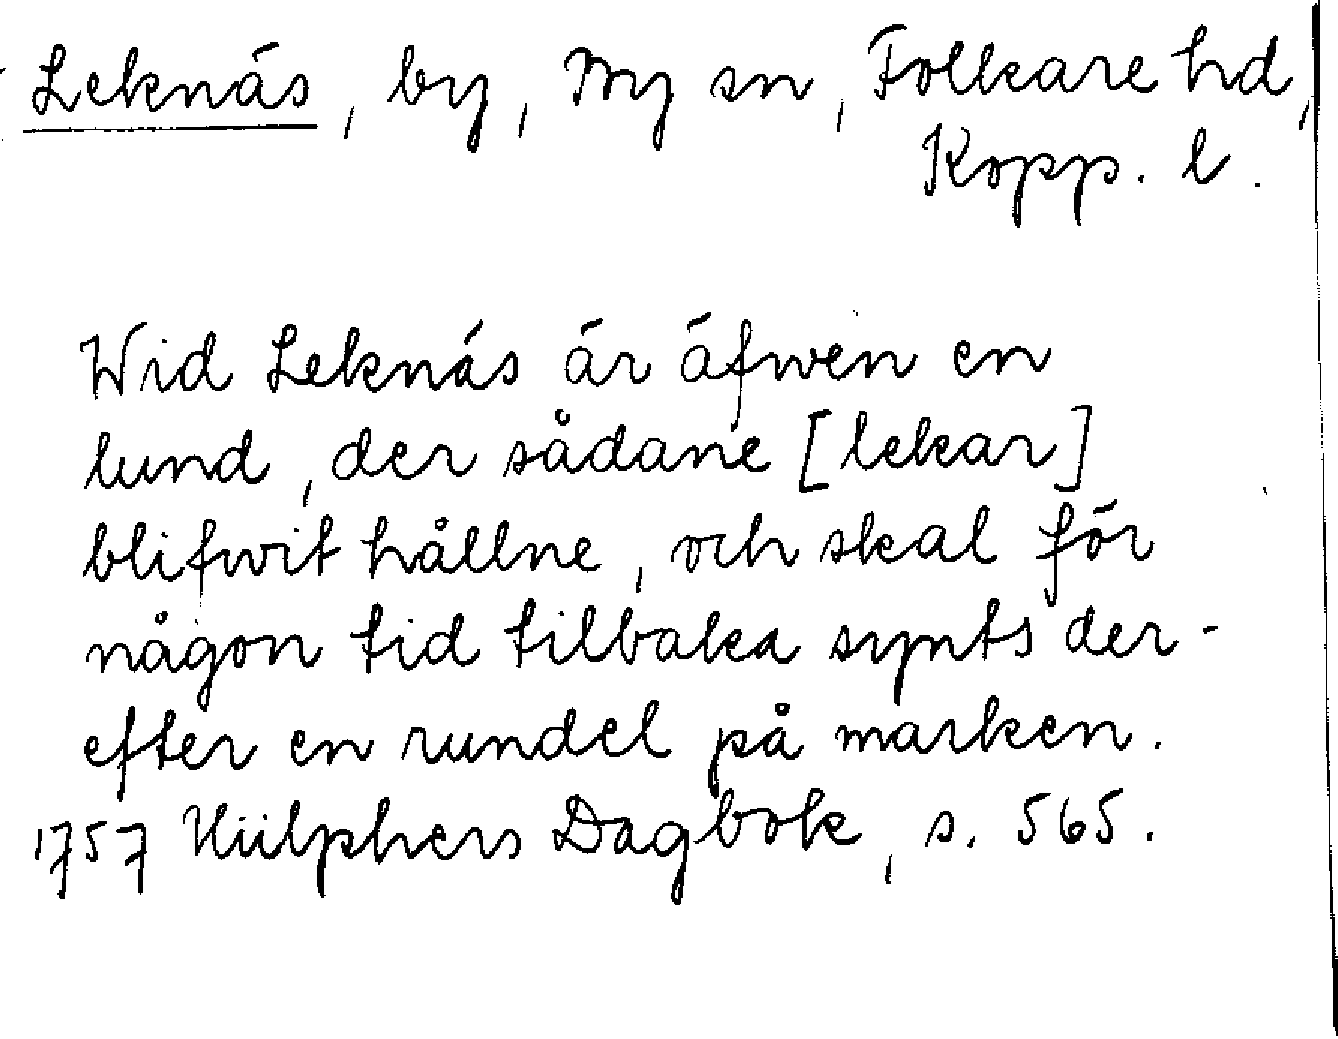 Leknäs, by, By sn, Folkare hd,
Kopp. l.
Wid Leknäs är äfwen en
lund, der sådane [lekar]
blifwit hållne, och skal för
någon tid tilbaka synts der-
efter en rundel på marken.
1757 Hülphers Dagbok, s. 565.